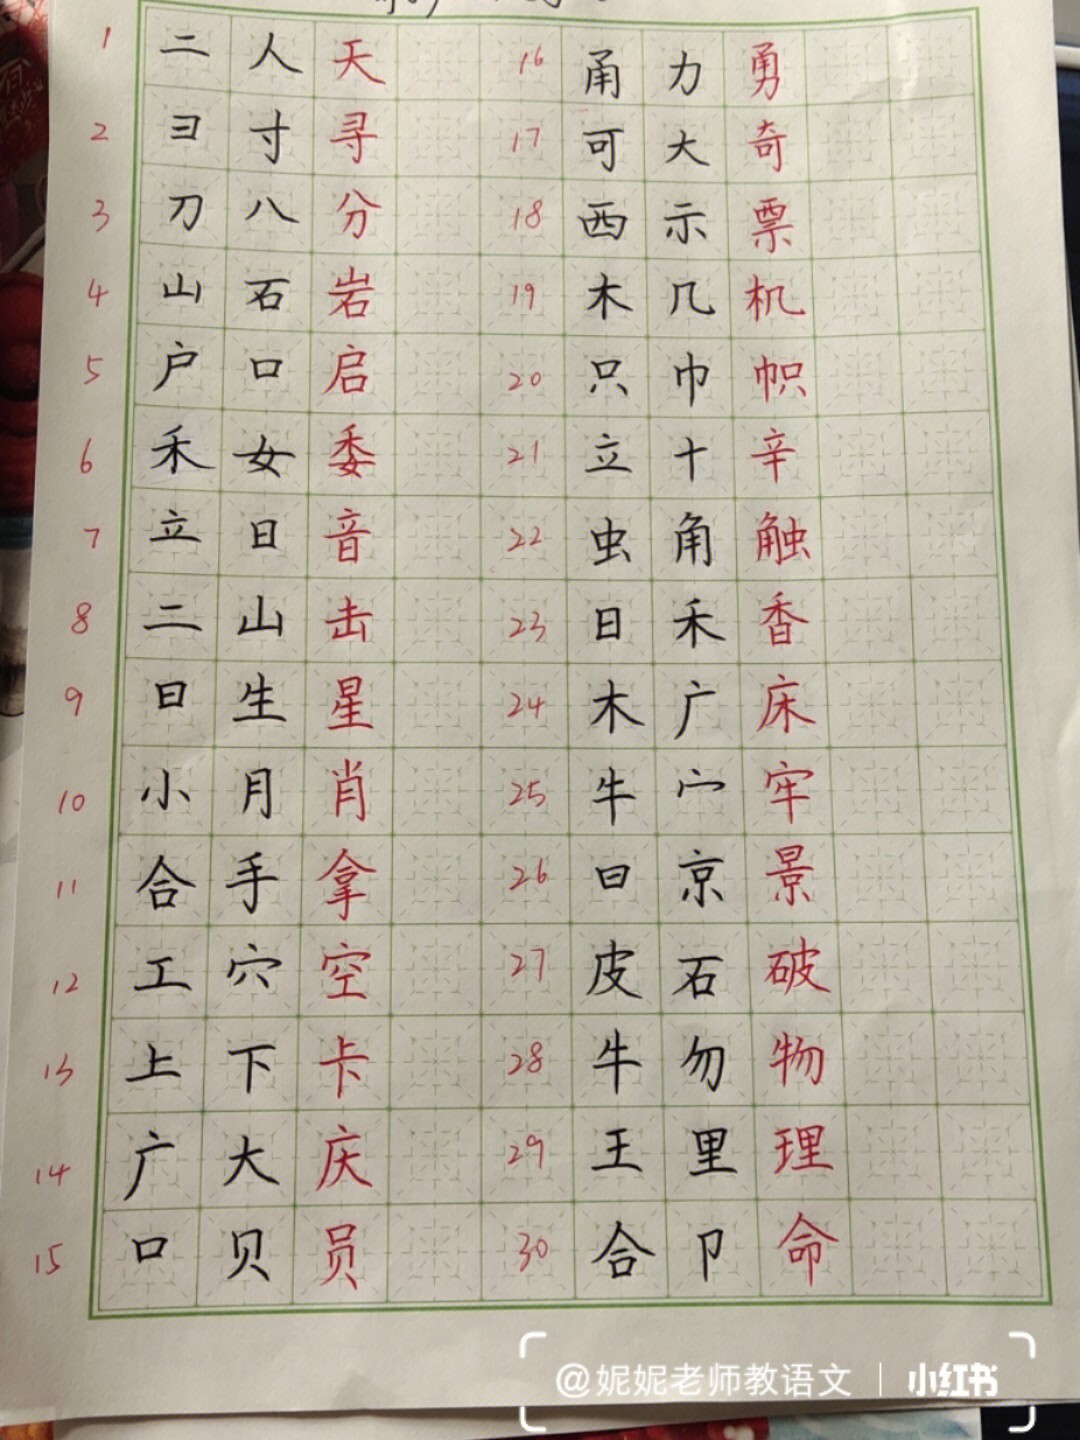 1 二 人 天 16 甬 力 勇
2 彐 寸 寻 17 可 大 奇
3 刀 八 分 18 西 示 票
4 山 石 岩 19 木 几 机
5 户 口 启 20 只 巾 帜
6 禾 女 委 21 立 十 辛
7 立 日 音 22 虫 角 触
8 二 山 击 23 日 禾 香
9 日 生 星 24 木 广 床
10 小 月 肖 25 牛 宀 牢
11 合 手 拿 26 日 京 景
12 工 穴 空 27 皮 石 破
13 上 下 卡 28 牛 勿 物
14 广 大 庆 29 王 里 理
15 口 贝 员 30 合 卩 命
@妮妮老师教语文 | 小红书